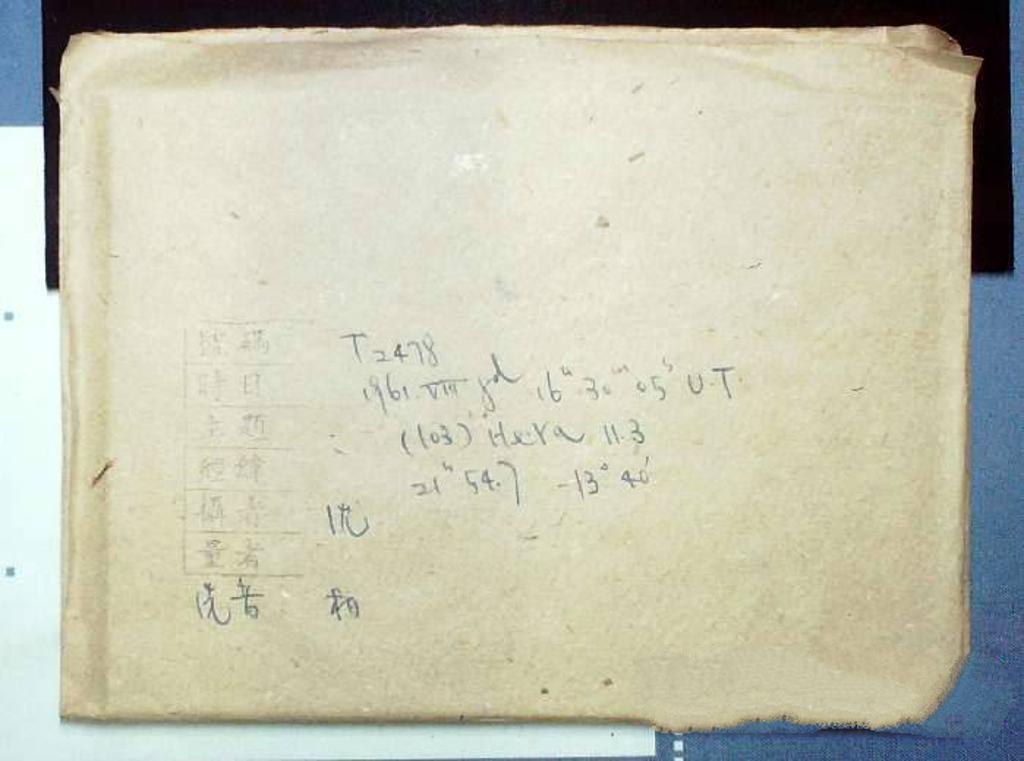 號碼 T2478
時日 1961. VIII 9d 16h 30m 05s U.T.
主題 (103) Hera 11.3
經緯 21h 54.7 -13° 40'
攝者 沈
量者
洗者